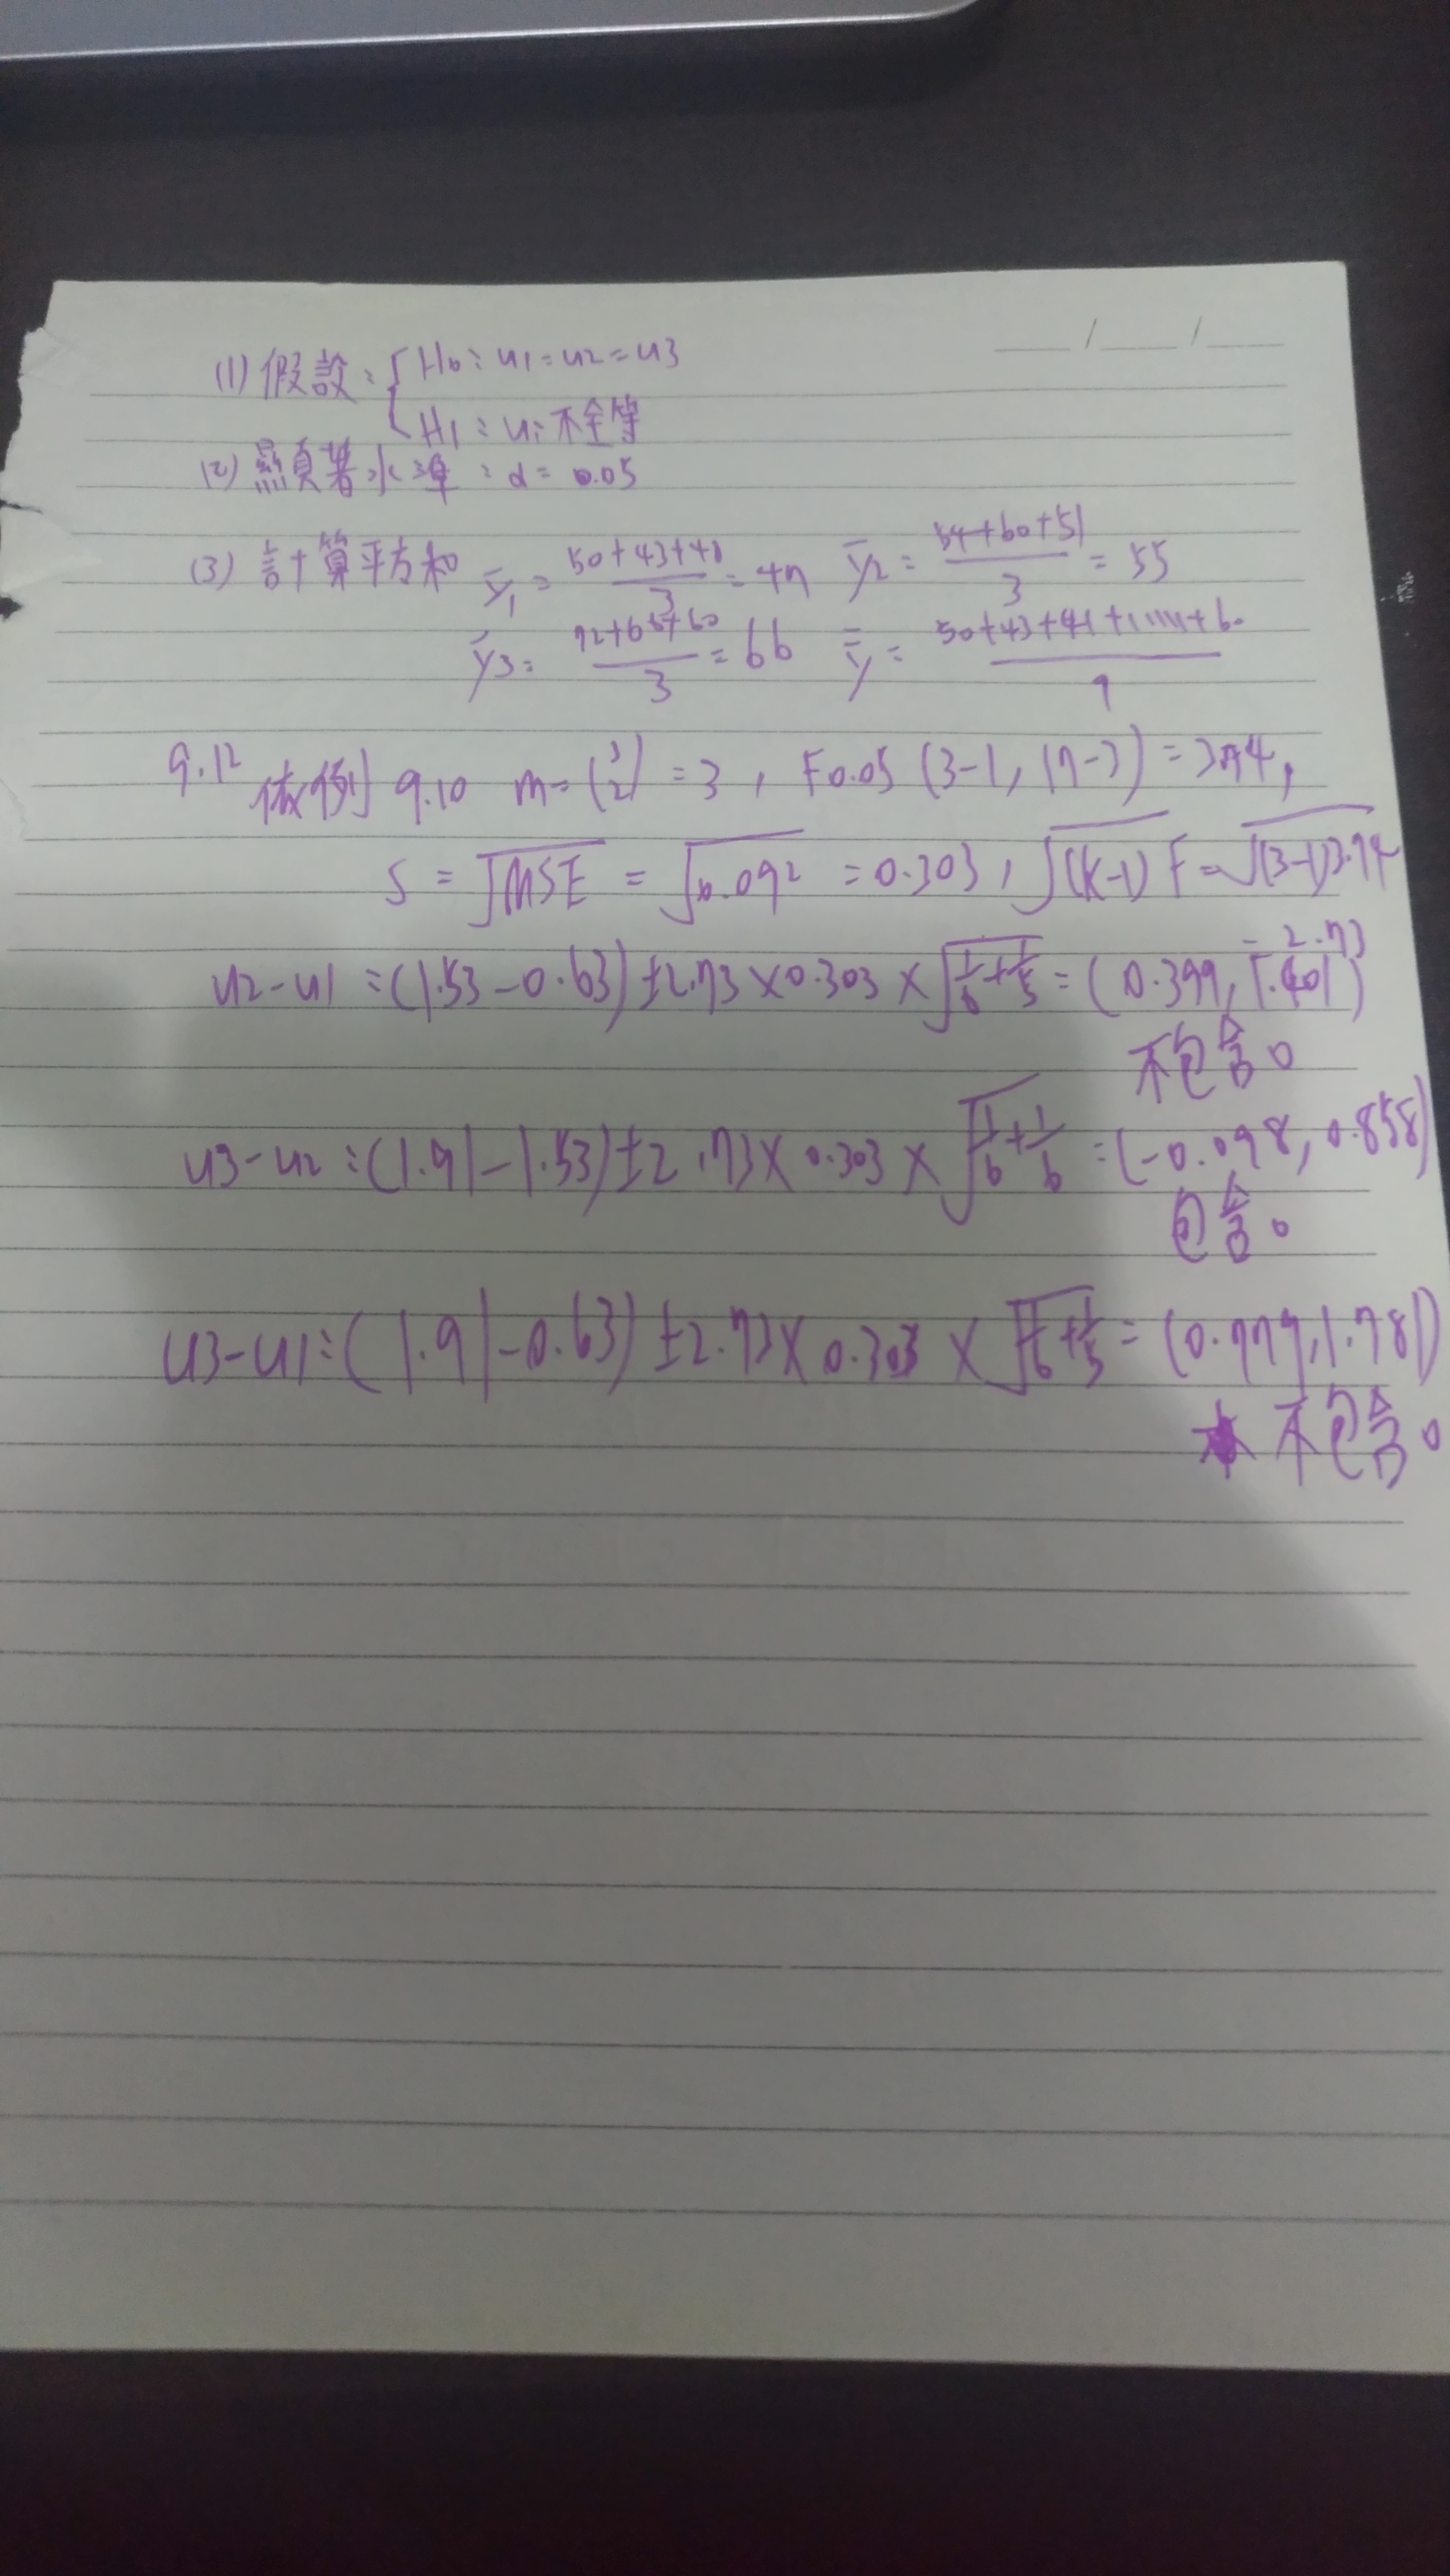 (1) 假設: { H0: u1=u2=u3
H1: ui 不全等
(2) 顯著水準: α= 0.05
(3) 計算平方和 ȳ1 = (50+43+48)/3 = 47 ȳ2 = (54+60+51)/3 = 55
ȳ3 = (72+66+60)/3 = 66 ȳ̄ = (50+43+48+......+60)/9
9.12 依例 9.10 m=(3 2)=3, F0.05 (3-1, 17-3) = 3.74,
S = √MSE = √0.092 = 0.303, √(k-1)F = √(3-1)3.74
= 2.73
u2-u1 : (1.53-0.63)±2.73×0.303×√1/6+1/5 = (0.399, 1.401)
不包含0
u3-u2 : (1.91-1.53)±2.73×0.303×√1/6+1/6 = (-0.098, 0.858)
包含0
u3-u1 : (1.91-0.63)±2.73×0.303×√1/6+1/5 = (0.779, 1.781)
不包含0